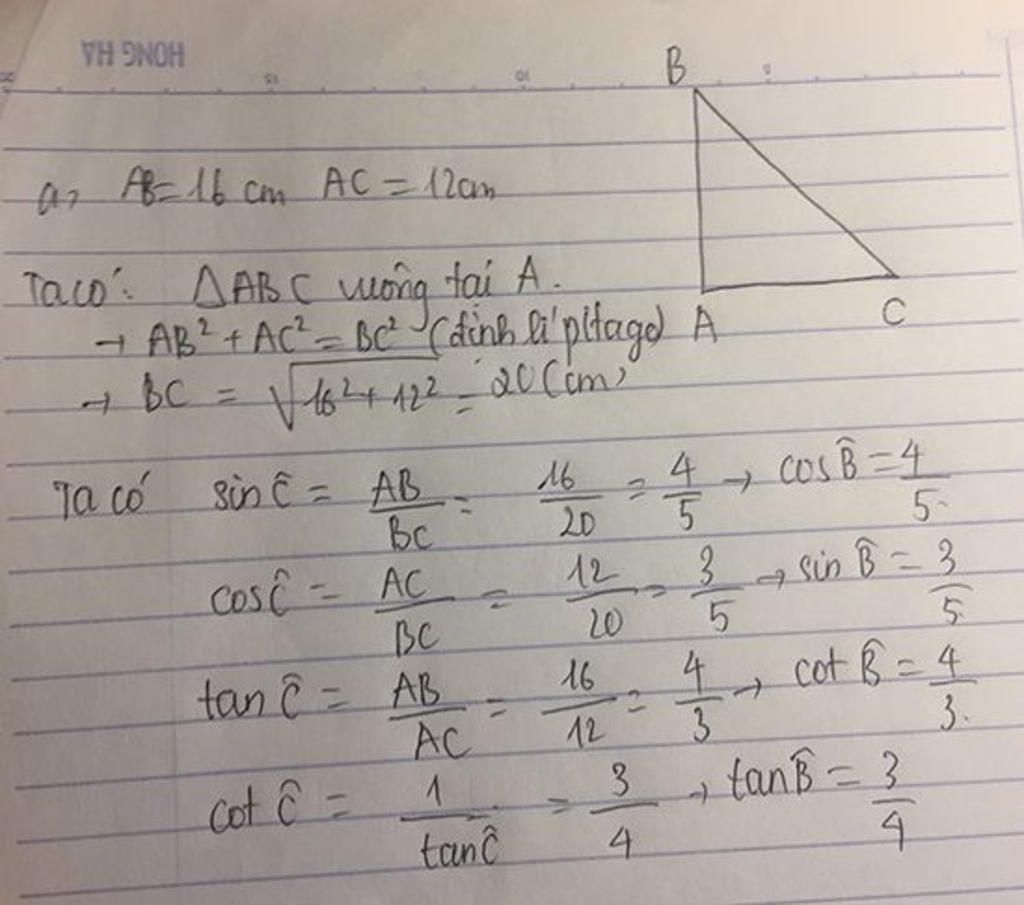 HONG HA
15 10 5
B
a, AB = 16 cm AC = 12cm
Ta có: ΔABC vuông tại A.
→ AB² + AC² = BC² (định lí pitago)
A C
→ BC = √(16² + 12²) = 20 (cm)
Ta có sin Ĉ = AB/BC = 16/20 = 4/5 → cos B̂ = 4/5.
cos Ĉ = AC/BC = 12/20 = 3/5 → sin B̂ = 3/5.
tan Ĉ = AB/AC = 16/12 = 4/3 → cot B̂ = 4/3.
cot Ĉ = 1/tan Ĉ = 3/4 → tan B̂ = 3/4